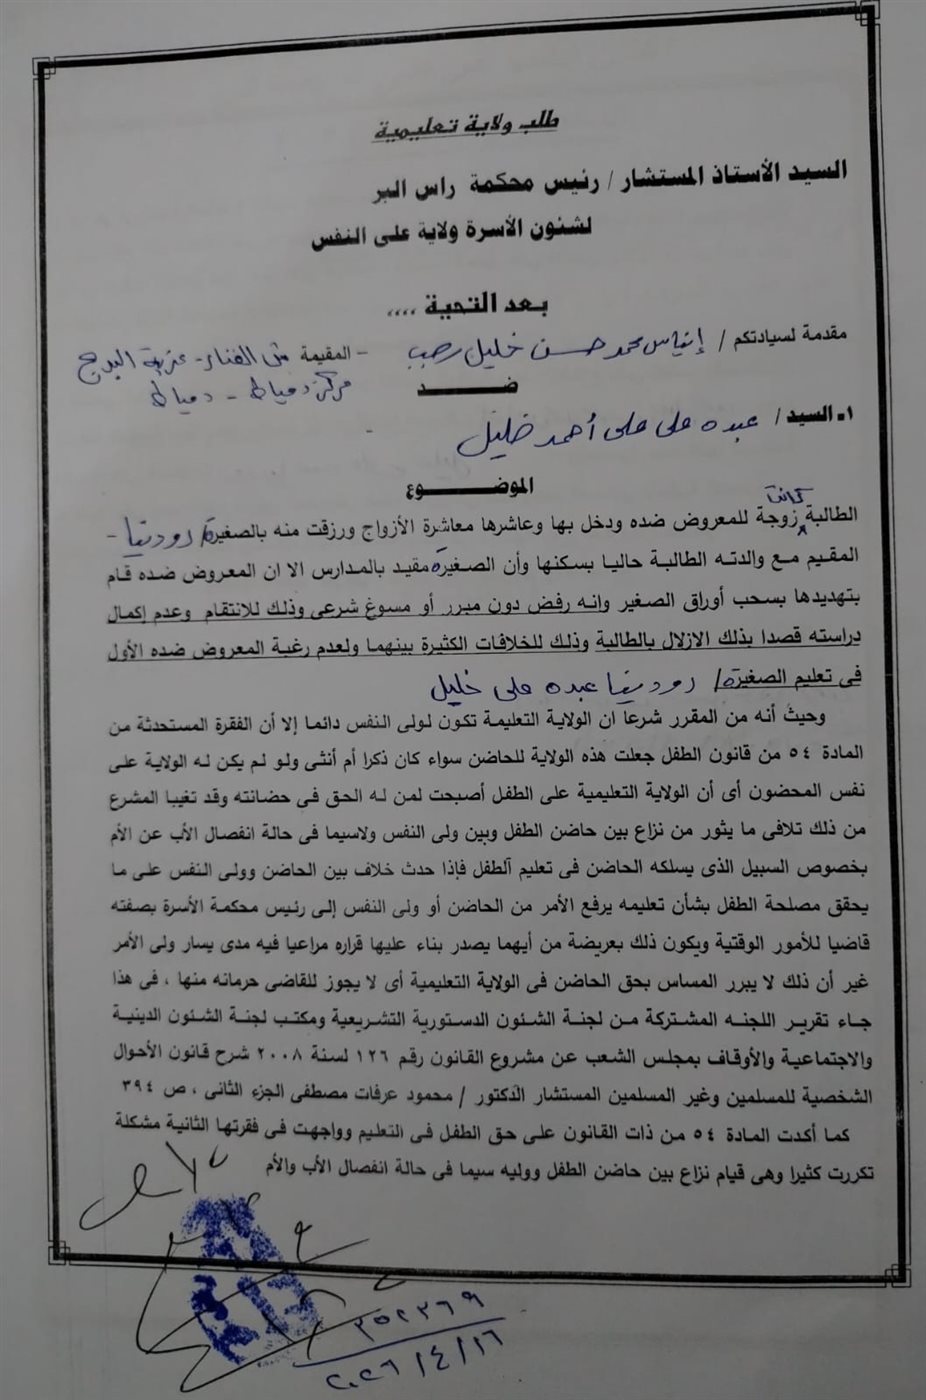 طلب ولاية تعليمية
السيد الأستاذ المستشار / رئيس محكمة راس البر
لشئون الأسرة ولاية على النفس
بعد التحية ,,,,
مقدمة لسيادتكم / إيناس محمد حسن خليل رجب - المقيمة الفنار - عزبة البرج
مركز دمياط - دمياط
ضـــــــد
١ـ السيد / عبده على على أحمد خليل -
الموضـــــــوع
الطالبة كانت زوجة للمعروض ضده ودخل بها وعاشرها معاشرة الأزواج ورزقت منه بالصغيرة / رودينا -
المقيم مع والدته الطالبة حاليا بسكنها وأن الصغيرة مقيد بالمدارس الا ان المعروض ضده قام
بتهديدها بسحب أوراق الصغير وانه رفض دون مبرر أو مسوغ شرعى وذلك للانتقام وعدم إكمال
دراسته قصدا بذلك الازلال بالطالبة وذلك للخلافات الكثيرة بينهما ولعدم رغبة المعروض ضده الأول
فى تعليم الصغيرة / رودينا عبده على خليل
وحيث أنه من المقرر شرعا ان الولاية التعليمية تكون لولى النفس دائما إلا أن الفقرة المستحدثة من
المادة ٥٤ من قانون الطفل جعلت هذه الولاية للحاضن سواء كان ذكرا أم أنثى ولو لم يكن له الولاية على
نفس المحضون أى أن الولاية التعليمية على الطفل أصبحت لمن له الحق فى حضانته وقد تغيبا المشرع
من ذلك تلافى ما يثور من نزاع بين حاضن الطفل وبين ولى النفس ولاسيما فى حالة انفصال الأب عن الأم
بخصوص السبيل الذى يسلكه الحاضن فى تعليم الطفل فإذا حدث خلاف بين الحاضن وولى النفس على ما
يحقق مصلحة الطفل بشأن تعليمه يرفع الأمر من الحاضن أو ولى النفس إلى رئيس محكمة الأسرة بصفته
قاضيا للأمور الوقتية ويكون ذلك بعريضة من أيهما يصدر بناء عليها قراره مراعيا فيه مدى يسار ولى الأمر
غير أن ذلك لا يبرر المساس بحق الحاضن فى الولاية التعليمية أى لا يجوز للقاضى حرمانه منها ، فى هذا
جاء تقرير اللجنه المشتركة من لجنة الشئون الدستورية التشريعية ومكتب لجنة الشئون الدينية
والاجتماعية والأوقاف بمجلس الشعب عن مشروع القانون رقم ١٢٦ لسنة ٢٠٠٨ شرح قانون الأحوال
الشخصية للمسلمين وغير المسلمين المستشار الدكتور / محمود عرفات مصطفى الجزء الثانى ، ص ٣٩٤
كما أكدت المادة ٥٤ من ذات القانون على حق الطفل فى التعليم وواجهت فى فقرتها الثانية مشكلة
تكررت كثيرا وهى قيام نزاع بين حاضن الطفل ووليه سيما فى حالة انفصال الأب والأم
٣٥٢٣٦٩
٢٠٢٦/٤/١٦